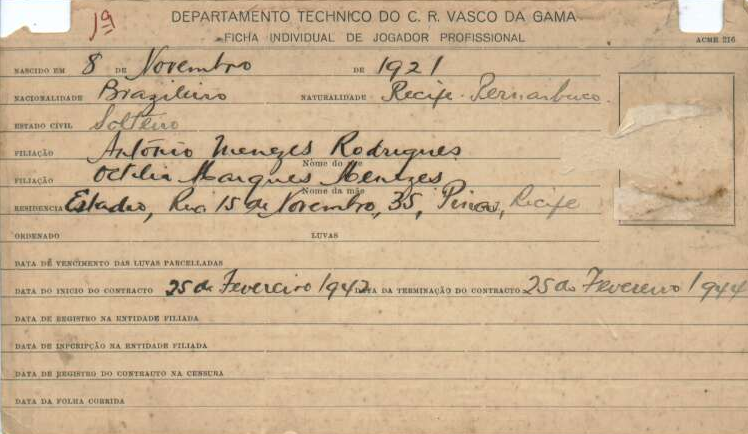 19
DEPARTAMENTO TECHNICO DO C. R. VASCO DA GAMA
FICHA INDIVIDUAL DE JOGADOR PROFISSIONAL
ACME 216
NASCIDO EM 8 DE Novembro DE 1921
NACIONALIDADE Brazileiro NATURALIDADE Recife Pernambuco
ESTADO CIVIL Solteiro
FILIAÇÃO António Menezes Rodrigues
Nome do pae
FILIAÇÃO Octilia Marques Menezes
Nome da mãe
RESIDENCIA Estadio, Rua 15 de Novembro, 35, Pina, Recife
ORDENADO LUVAS
DATA DE VENCIMENTO DAS LUVAS PARCELLADAS
DATA DO INICIO DO CONTRACTO 25 de Fevereiro 1942 DATA DA TERMINAÇÃO DO CONTRACTO 25 de Fevereiro 1944
DATA DE REGISTRO NA ENTIDADE FILIADA
DATA DE INPCRIPÇÃO NA ENTIDADE FILIADA
DATA DE REGISTRO DO CONTRACTO NA CENSURA
DATA DA FOLHA CORRIDA